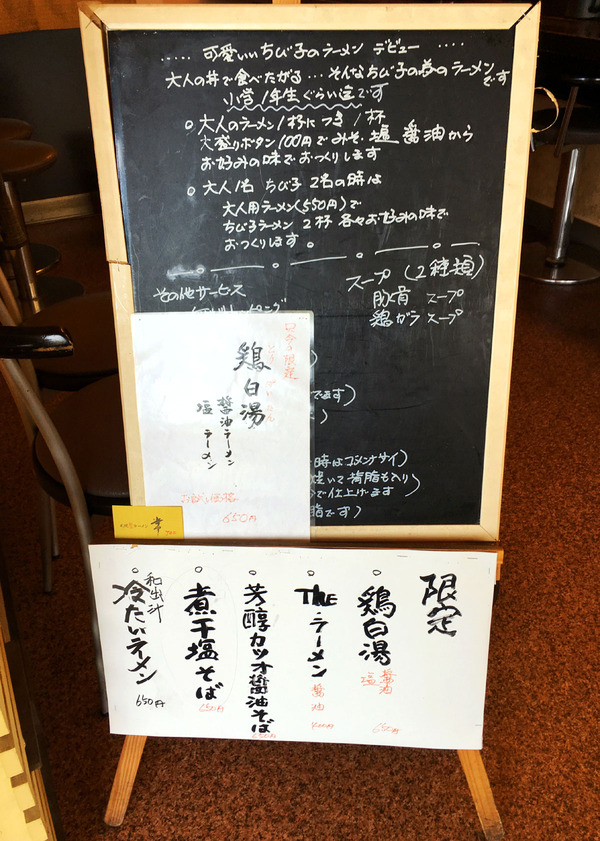 ‥‥‥ 可愛いいちび子のラーメン デビュー ‥‥‥
大人の丼で食べたがる…そんなちび子の為のラーメン
です
小学1年生ぐらい迄です
○大人のラーメン1杯につき1杯
大盛りボタン100円でみそ、塩 醤油から
お好みの味でおつくりします
○大人1名 ちび子2名の時は
大人用ラーメン(550円)で
ちび子ラーメン 2杯 各々お好みの味で
おつくりします。
スープ(2種類)
豚骨 スープ
鶏ガラ スープ
その他サービス
時はゴメンナサイ)
焼いて背脂も入り
で仕上げます
脂です)
限定
鶏白湯
醤油ラーメン
塩 ラーメン
650円
限定
○鶏白湯 醤油 塩 650円
○THEラーメン 醤油
○芳醇カツオ醤油そば 650円
○煮干塩そば 650円
○和出汁 冷たいラーメン 650円